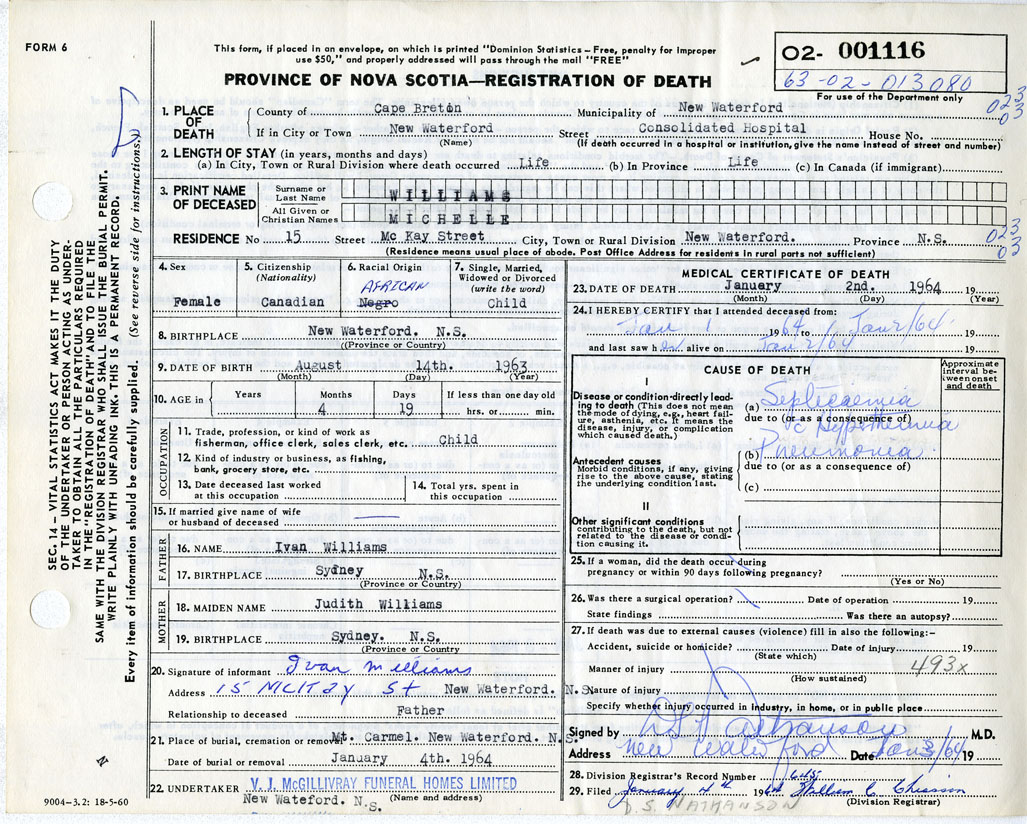 FORM 6
This form, if placed in an envelope, on which is printed "Dominion Statistics – Free, penalty for improper
use $50," and properly addressed will pass through the mail "FREE"
PROVINCE OF NOVA SCOTIA—REGISTRATION OF DEATH
02- 001116
63-02-013080
For use of the Department only
023
03
1. PLACE OF DEATH
County of Cape Breton Municipality of New Waterford
If in City or Town New Waterford Street Consolidated Hospital House No.
(Name) (If death occurred in a hospital or institution, give the name instead of street and number)
2. LENGTH OF STAY (in years, months and days)
(a) In City, Town or Rural Division where death occurred Life (b) In Province Life (c) In Canada (if immigrant)
3. PRINT NAME OF DECEASED
Surname or Last Name WILLIAMS
All Given or Christian Names MICHELLE
RESIDENCE No 15 Street Mc Kay Street City, Town or Rural Division New Waterford. Province N.S.
(Residence means usual place of abode. Post Office Address for residents in rural parts not sufficient)
023
03
4. Sex
Female
5. Citizenship
(Nationality)
Canadian
6. Racial Origin
AFRICAN
Negro
7. Single, Married, Widowed or Divorced
(write the word)
Child
8. BIRTHPLACE New Waterford. N.S.
(Province or Country)
9. DATE OF BIRTH August 14th. 1963
(Month) (Day) (Year)
10. AGE in Years Months Days If less than one day old
4 19 hrs. or min.
OCCUPATION
11. Trade, profession, or kind of work as
fisherman, office clerk, sales clerk, etc. Child
12. Kind of industry or business, as fishing,
bank, grocery store, etc.
13. Date deceased last worked
at this occupation
14. Total yrs. spent in
this occupation
15. If married give name of wife
or husband of deceased
FATHER
16. NAME Ivan Williams
17. BIRTHPLACE Sydney N.S.
(Province or Country)
MOTHER
18. MAIDEN NAME Judith Williams
19. BIRTHPLACE Sydney. N.S.
(Province or Country
20. Signature of informant Ivan Williams
Address 15 McKay St New Waterford. N.S.
Relationship to deceased Father
21. Place of burial, cremation or removal Mt. Carmel. New Waterford. N.S.
Date of burial or removal January 4th. 1964
22. UNDERTAKER V. J. McGILLIVRAY FUNERAL HOMES LIMITED
New Wateford. N.S. (Name and address)
9004–3.2: 18-5-60
MEDICAL CERTIFICATE OF DEATH
23. DATE OF DEATH January 2nd. 1964 19
(Month) (Day) (Year)
24. I HEREBY CERTIFY that I attended deceased from:
Jan 1 1964 to Jan 2/64 19
and last saw her alive on Jan 2/64 19
CAUSE OF DEATH
Approximate interval between onset and death
I
Disease or condition directly leading to death (This does not mean the mode of dying, e.g., heart failure, asthenia, etc. It means the disease, injury, or complication which caused death.)
(a) Septicaemia
due to (or as a consequence of)
c Hypothermia
Antecedent causes
Morbid conditions, if any, giving rise to the above cause, stating the underlying condition last.
(b) Pneumonia
due to (or as a consequence of)
(c)
II
Other significant conditions
contributing to the death, but not related to the disease or condition causing it.
25. If a woman, did the death occur during
pregnancy or within 90 days following pregnancy?
(Yes or No)
26. Was there a surgical operation? Date of operation 19
State findings Was there an autopsy?
27. If death was due to external causes (violence) fill in also the following:–
Accident, suicide or homicide? Date of injury 19
(State which)
Manner of injury 493x
(How sustained)
Nature of injury
Specify whether injury occurred in industry, in home, or in public place
Signed by M.D.
Address New Waterford Date Jan 3/64 19
28. Division Registrar's Record Number
29. Filed January 4th 1964 William C Chiasson
(Division Registrar)
D.S. NATHANSON
SEC. 14 – VITAL STATISTICS ACT MAKES IT THE DUTY
OF THE UNDERTAKER OR PERSON ACTING AS UNDERTAKER
TO OBTAIN ALL THE PARTICULARS REQUIRED
IN THE "REGISTRATION OF DEATH" AND TO FILE THE
SAME WITH THE DIVISION REGISTRAR WHO SHALL ISSUE THE BURIAL PERMIT.
WRITE PLAINLY WITH UNFADING INK. THIS IS A PERMANENT RECORD.
Every item of information should be carefully supplied. (See reverse side for instructions.)